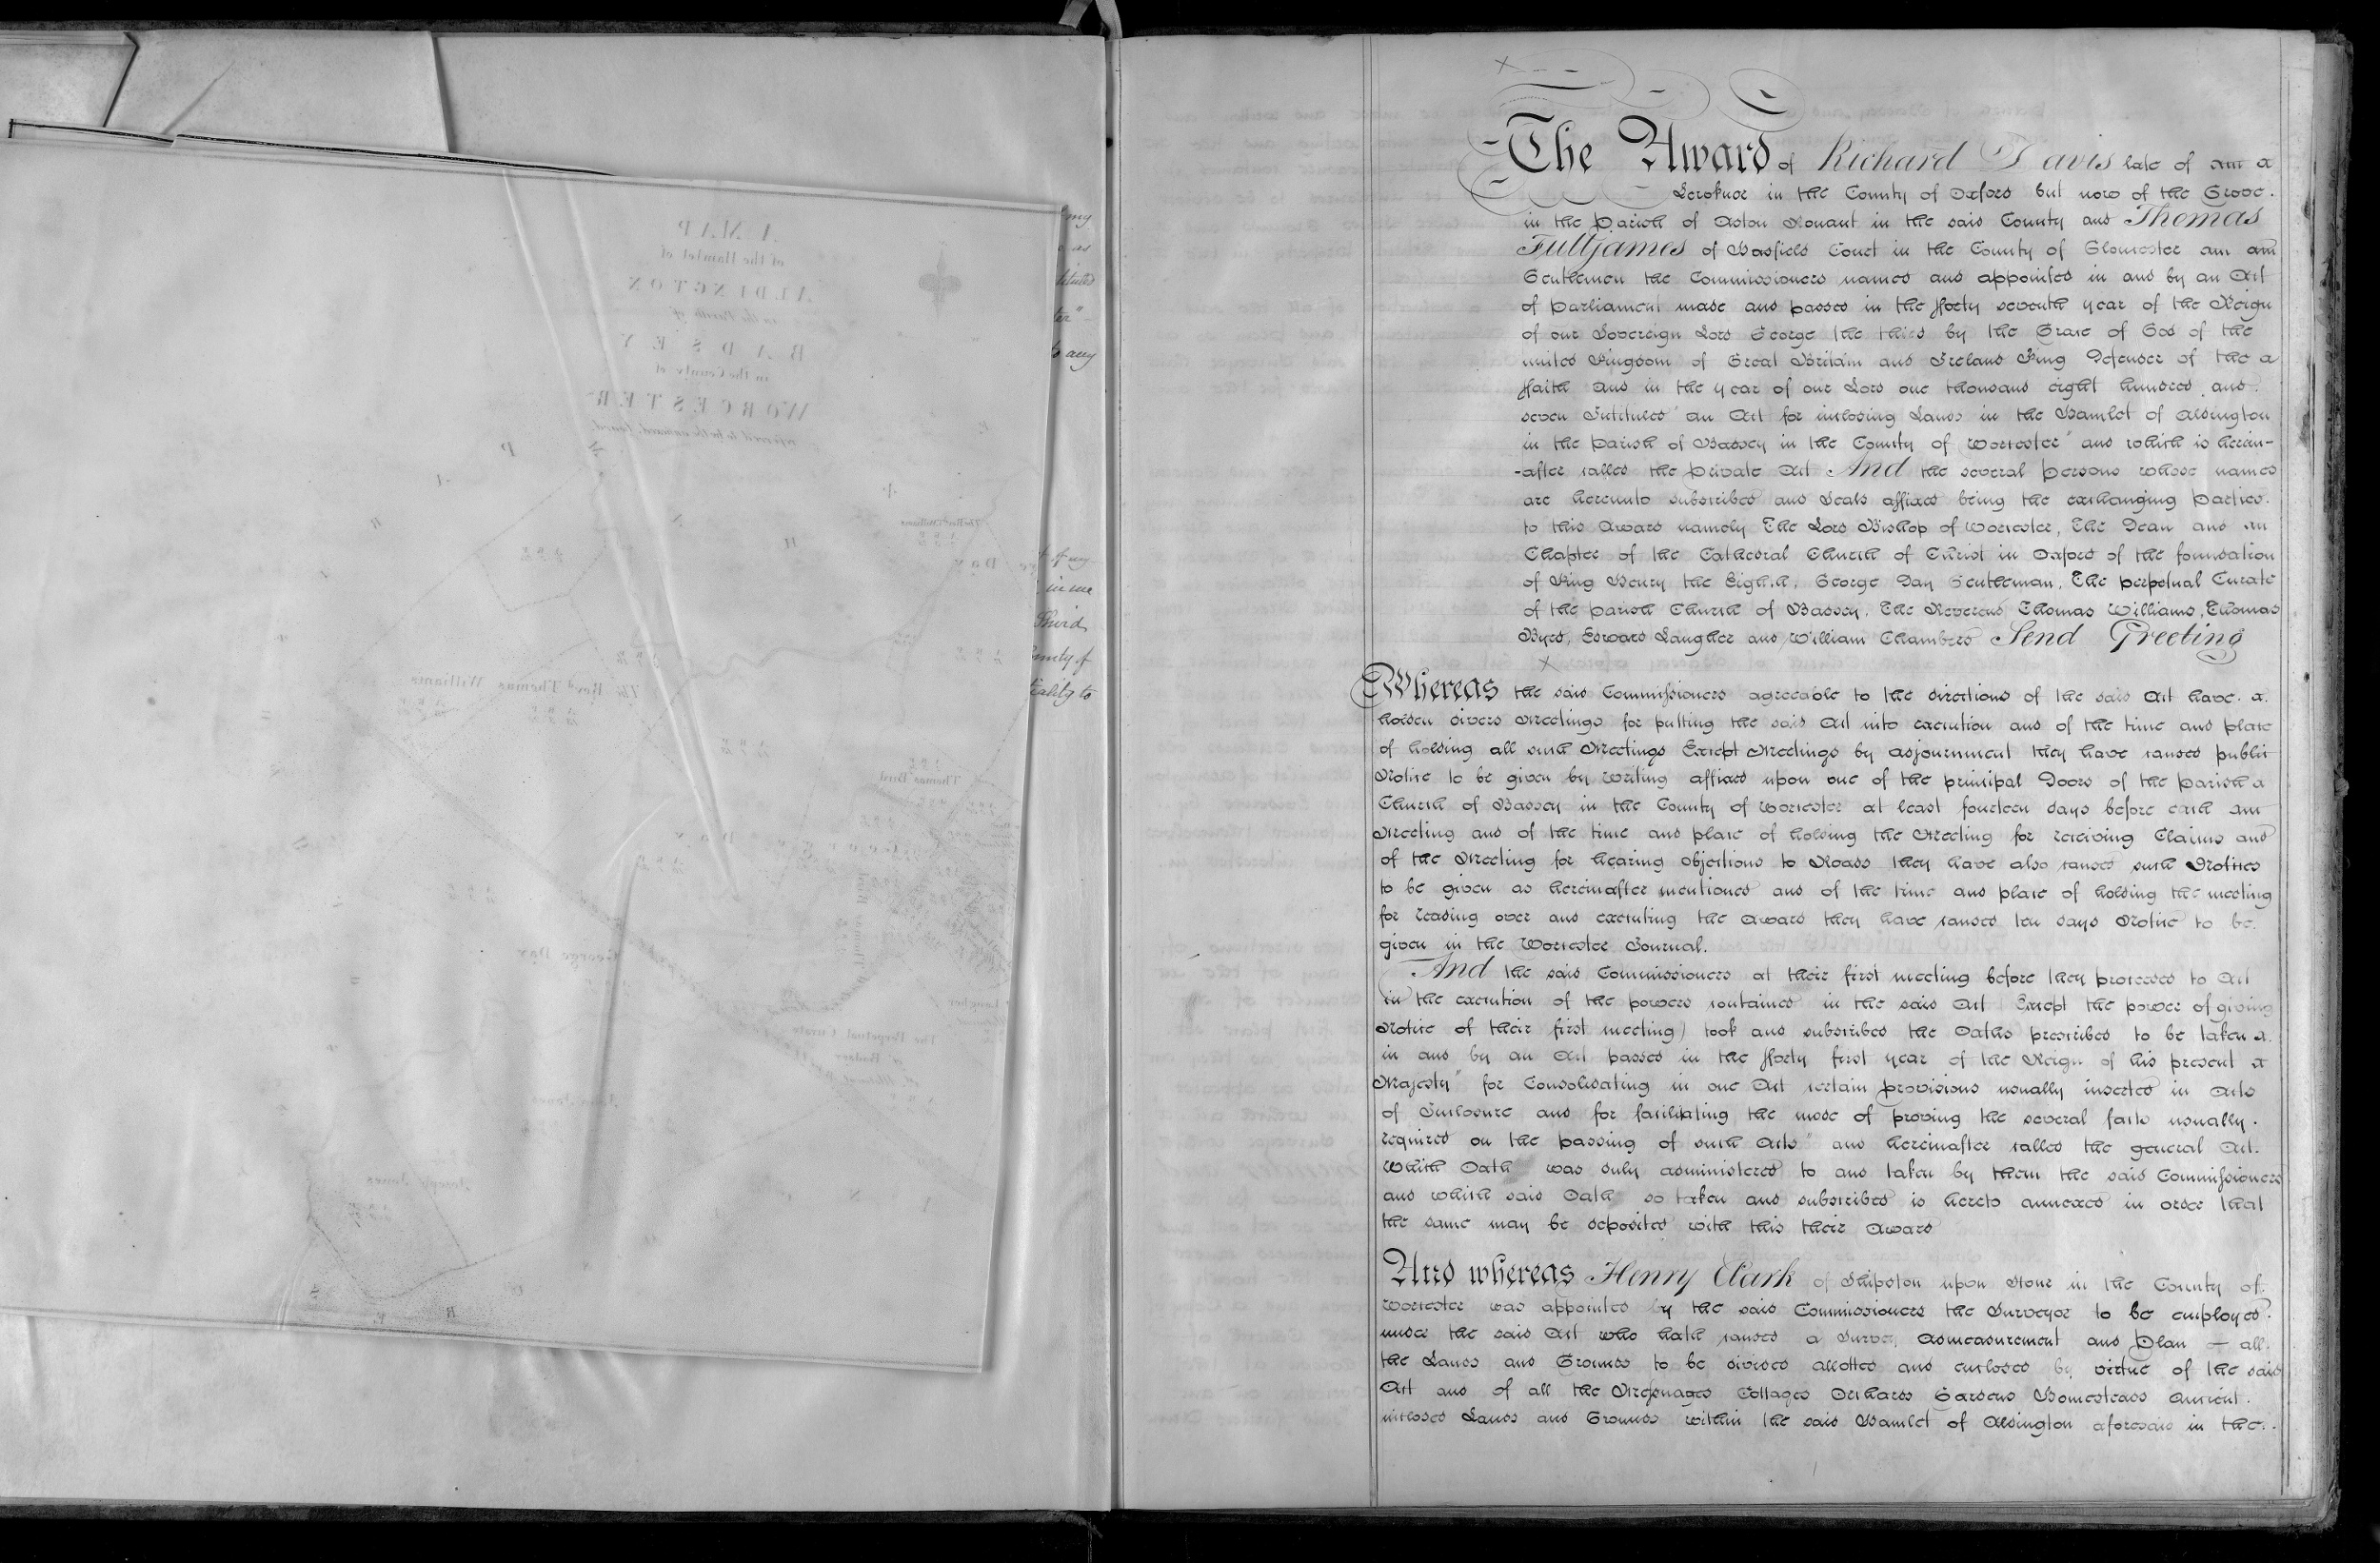 A MAP
of the Hamlet of
ALDINGTON
in the Parish of
BADSEY
in the County of
WORCESTER
referred to by the annexed Award.
The Revd Thomas Williams
Thomas Byrd
George Day
The Perpetual Curate
of Badsey
Joseph Jones
my
as
to any
of my
in me
Third
County of
The Award of Richard Davis late of
Lewknor in the County of Oxford but now of the Grove
in the Parish of Aston Rowant in the said County and Thomas
Fulljames of Hasfield Court in the County of Gloucester
Gentlemen the Commissioners named and appointed in and by an Act
of Parliament made and passed in the Forty seventh year of the Reign
of our Sovereign Lord George the third by the Grace of God of the
united Kingdom of Great Britain and Ireland King Defender of the
Faith and in the year of our Lord one thousand eight hundred and
seven Intituled "an Act for inclosing Lands in the Hamlet of Aldington
in the Parish of Badsey in the County of Worcester" and which is herein-
-after called the private Act And the several persons whose names
are hereunto subscribed and Seals affixed being the exchanging Parties
to this Award namely The Lord Bishop of Worcester, The Dean and
Chapter of the Cathedral Church of Christ in Oxford of the foundation
of King Henry the Eighth, George Day Gentleman, The perpetual Curate
of the parish Church of Badsey, The Reverend Thomas Williams, Thomas
Byrd, Edward Laugher and William Chambers Send Greeting
Whereas the said Commissioners agreeable to the directions of the said Act have
holden divers Meetings for putting the said Act into execution and of the time and place
of holding all such Meetings Except Meetings by adjournment they have caused public
Notice to be given by writing affixed upon one of the principal Doors of the parish
Church of Badsey in the County of Worcester at least fourteen days before each
Meeting and of the time and place of holding the Meeting for receiving Claims and
of the Meeting for hearing objections to Roads they have also caused such Notices
to be given as hereinafter mentioned and of the time and place of holding the meeting
for reading over and executing the Award they have caused ten days Notice to be
given in the Worcester Journal.
And the said Commissioners at their first meeting before they proceeded to Act
in the execution of the powers contained in the said Act Except the power of giving
Notice of their first meeting) took and subscribed the Oaths prescribed to be taken
in and by an Act passed in the Forty first year of the Reign of his present
Majesty "for Consolidating in one Act certain provisions usually inserted in Acts
of Inclosure and for facilitating the mode of proving the several facts usually
required on the passing of such Acts" and hereinafter called the general Act
which Oath was duly administered to and taken by them the said Commissioners
and which said Oath so taken and subscribed is hereto annexed in order that
the same may be deposited with this their Award
And whereas Henry Clark of Shipston upon Stour in the County of
Worcester was appointed by the said Commissioners the Surveyor to be employed
under the said Act who hath caused a Survey admeasurement and Plan all
the Lands and Grounds to be divided allotted and enclosed by virtue of the said
Act and of all the Messuages Cottages Orchards Gardens Homesteads Ancient
inclosed Lands and Grounds within the said Hamlet of Aldington aforesaid in the